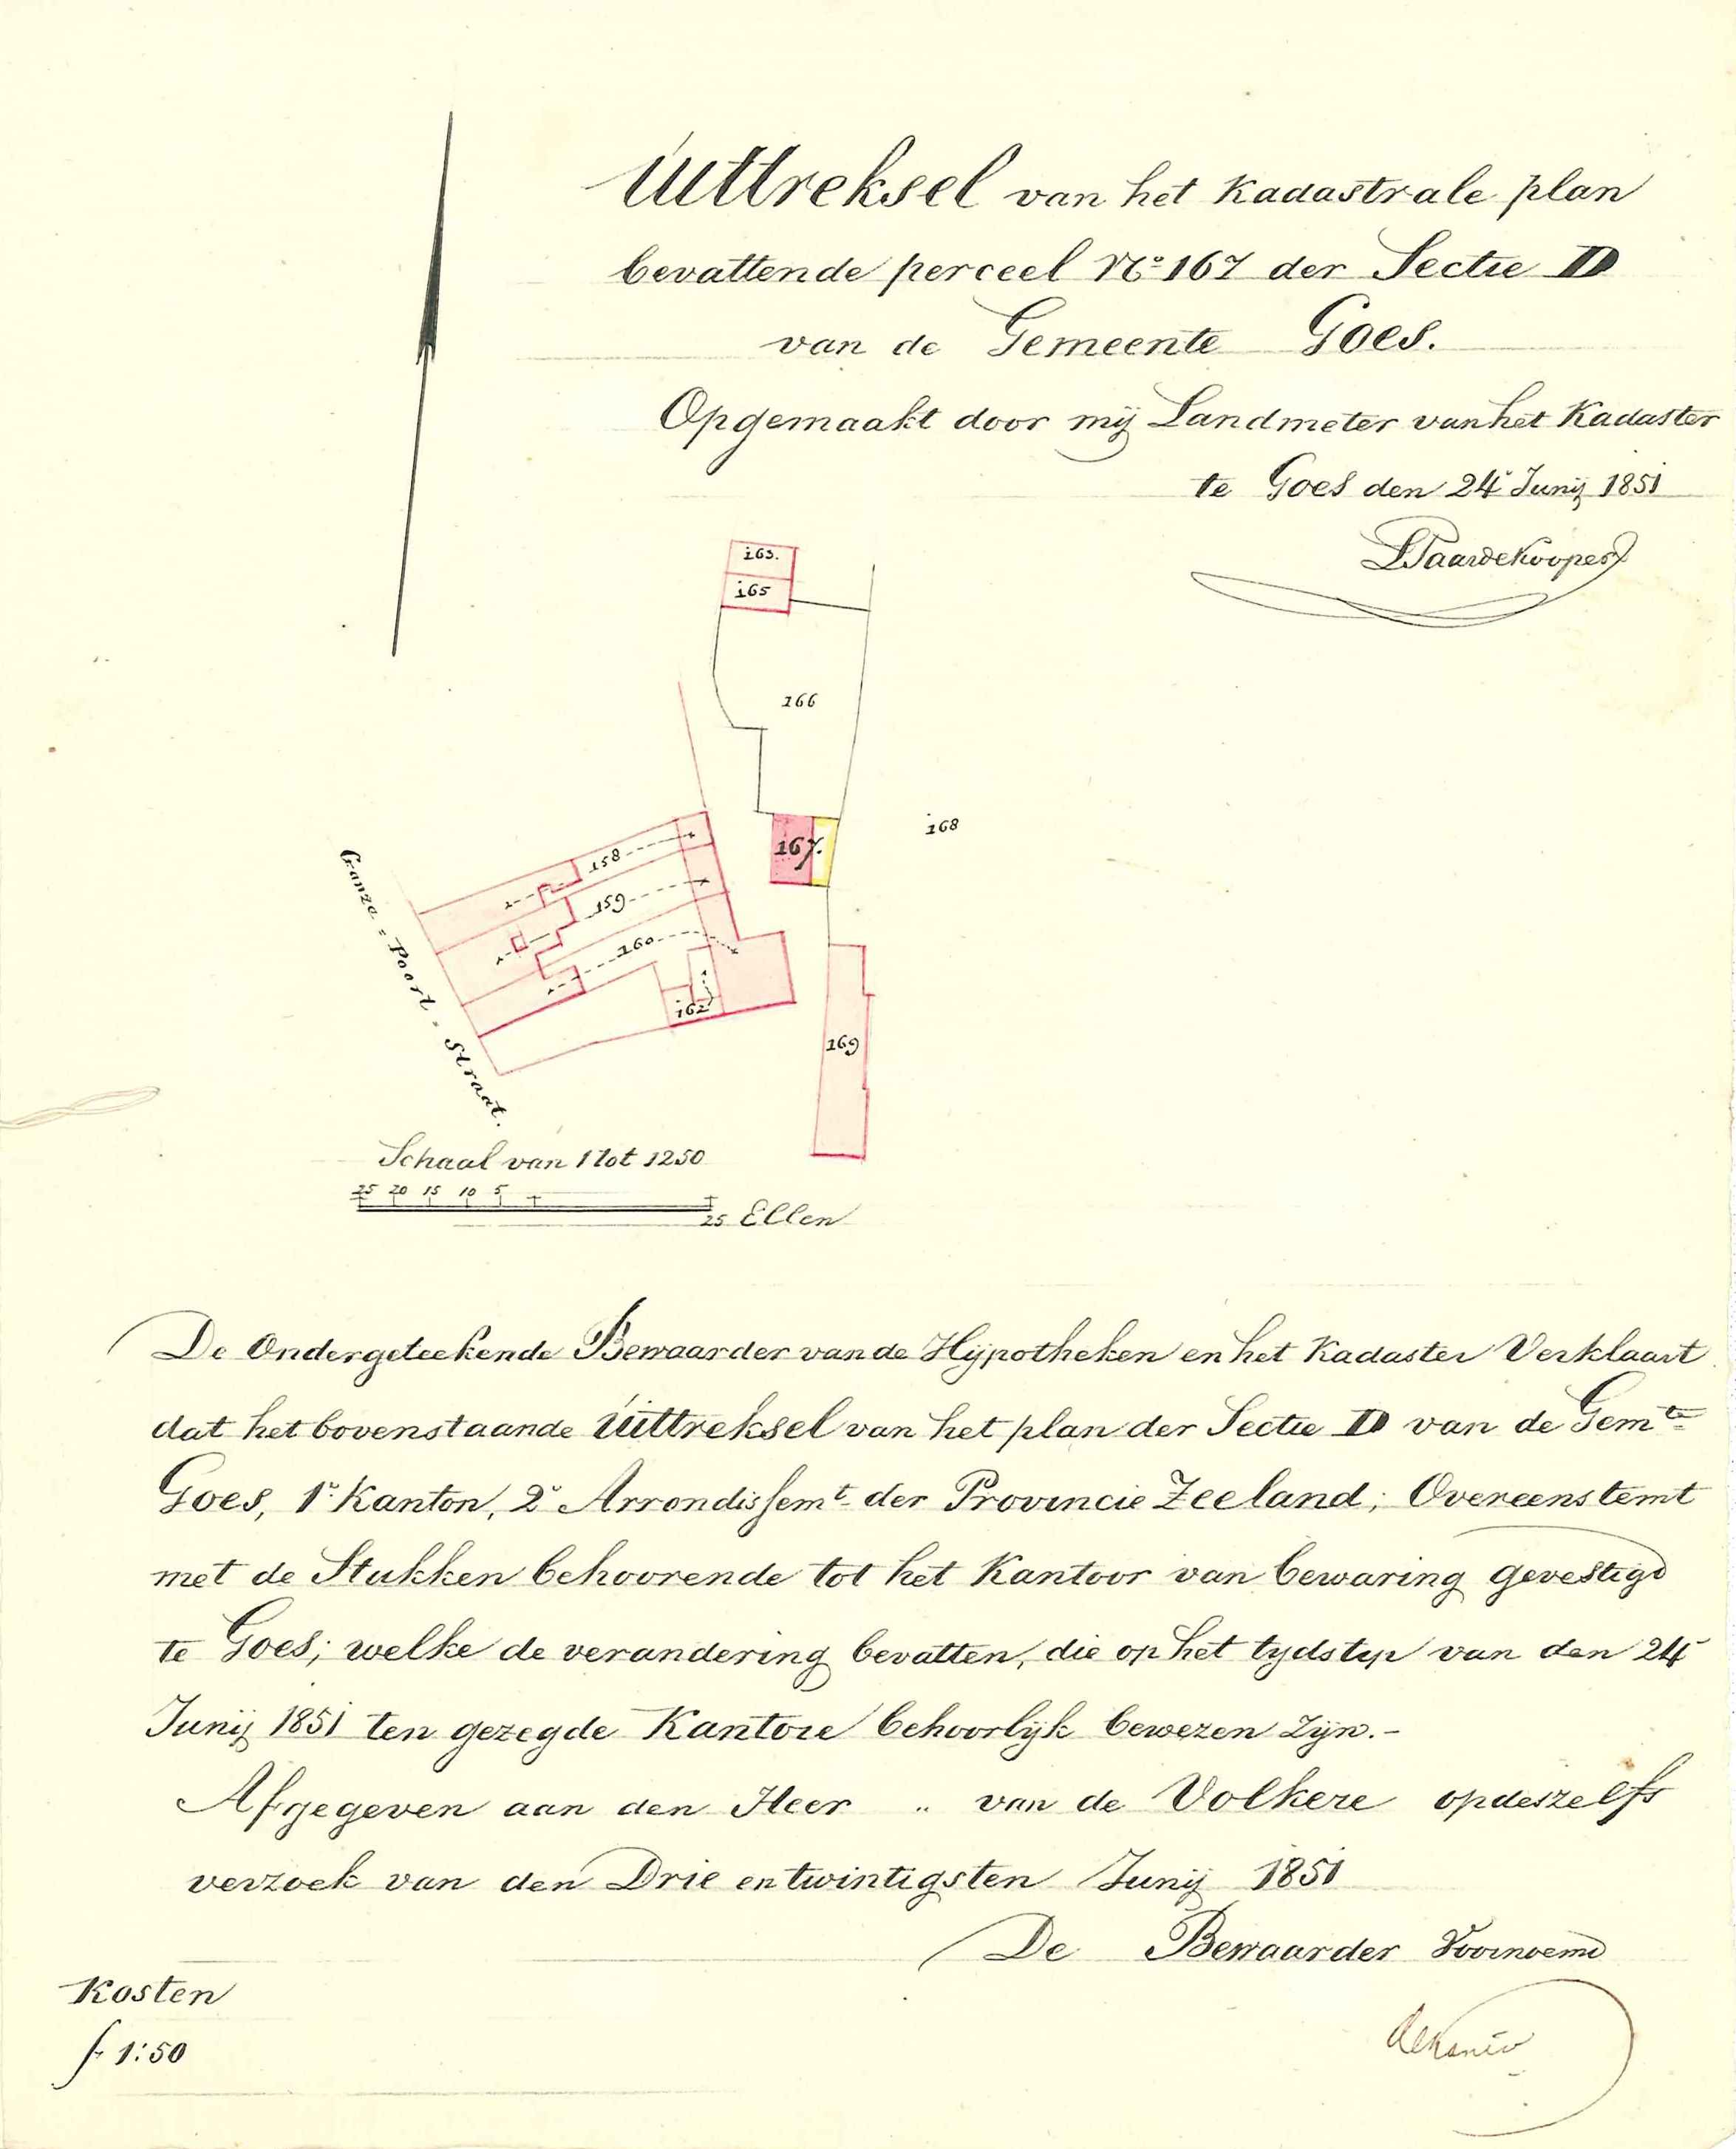 Uittreksel van het Kadastrale plan
bevattende perceel No 167 der Sectie D
van de Gemeente Goes.
Opgemaakt door mij Landmeter van het Kadaster
te Goes den 24e Junij 1851
Paardekooper
163.
165
166
167.
168
158
159
160
162
169
Ganze = Poort = Straat.
Schaal van 1 tot 1250
25 20 15 10 5
25 Ellen
De Ondergeteekende Bewaarder van de Hypotheken en het Kadaster Verklaart
dat het bovenstaande Uittreksel van het plan der Sectie D van de Gemte
Goes, 1e Kanton, 2e Arrondissemt der Provincie Zeeland; Overeenstemt
met de Stukken behoorende tot het Kantoor van bewaring gevestigd
te Goes; welke de verandering bevatten, die op het tydstip van den 24e
Junij 1851 ten gezegde Kantore behoorlijk bewezen Zijn.-
Afgegeven aan den Heer " van de Volkere opdeszelfs
verzoek van den Drie en twintigsten Junij 1851
De Bewaarder Voornoemd
Kosten
f 1:50